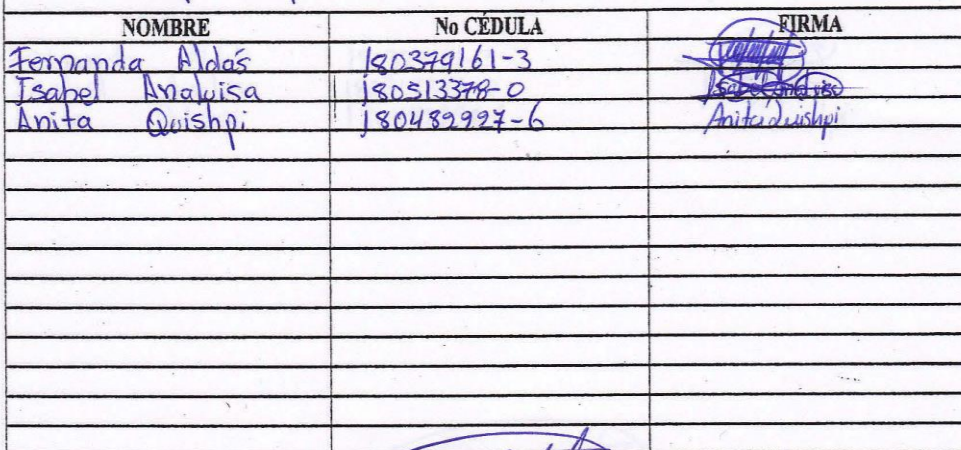 NOMBRE No CÉDULA FIRMA
Fernanda Aldás 180379161-3
Isabel Analuisa 180513378-0 Isabel Analuisa
Anita Quishpi 180482927-6 Anita Quishpi